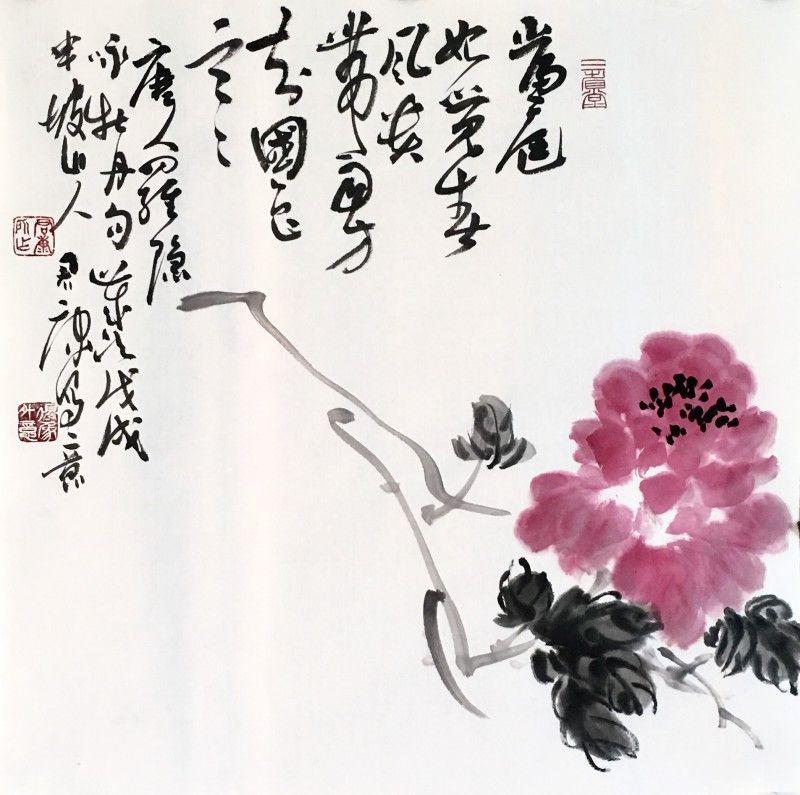 當庭
始覺春
風貴
帶雨方
知國色
寒
唐人羅隱
咏牡丹句 歲次戊戌
半坡山人 君康寫意